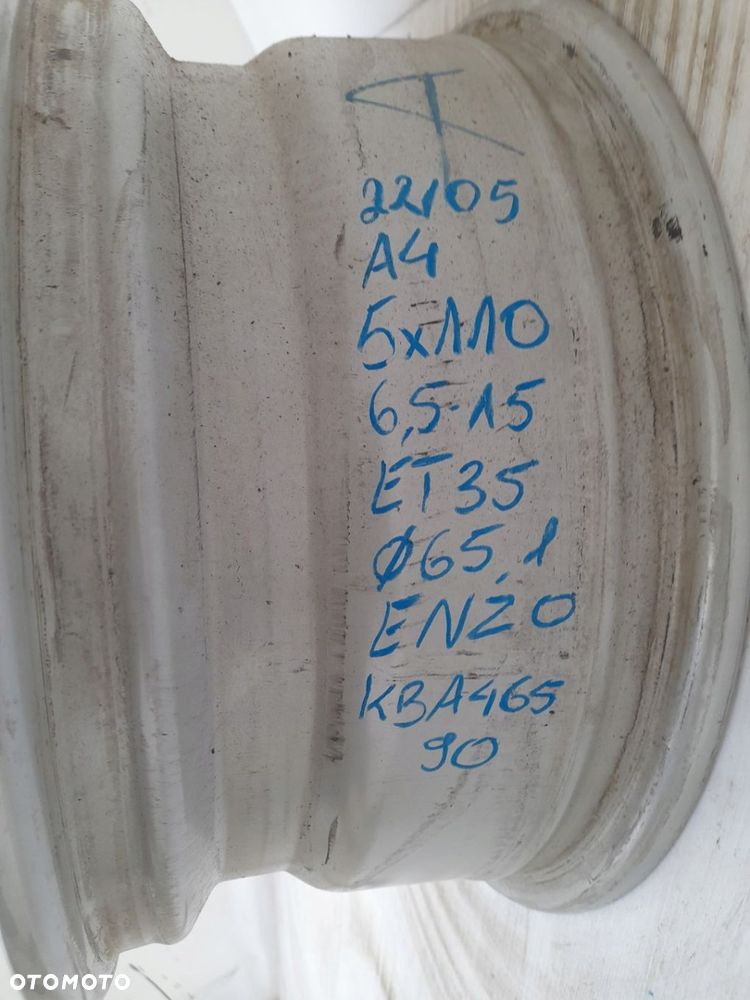 22/05
A4
5x110
6,5-15
ET35
Ø65,1
ENZO
KBA465
90
OTOMOTO